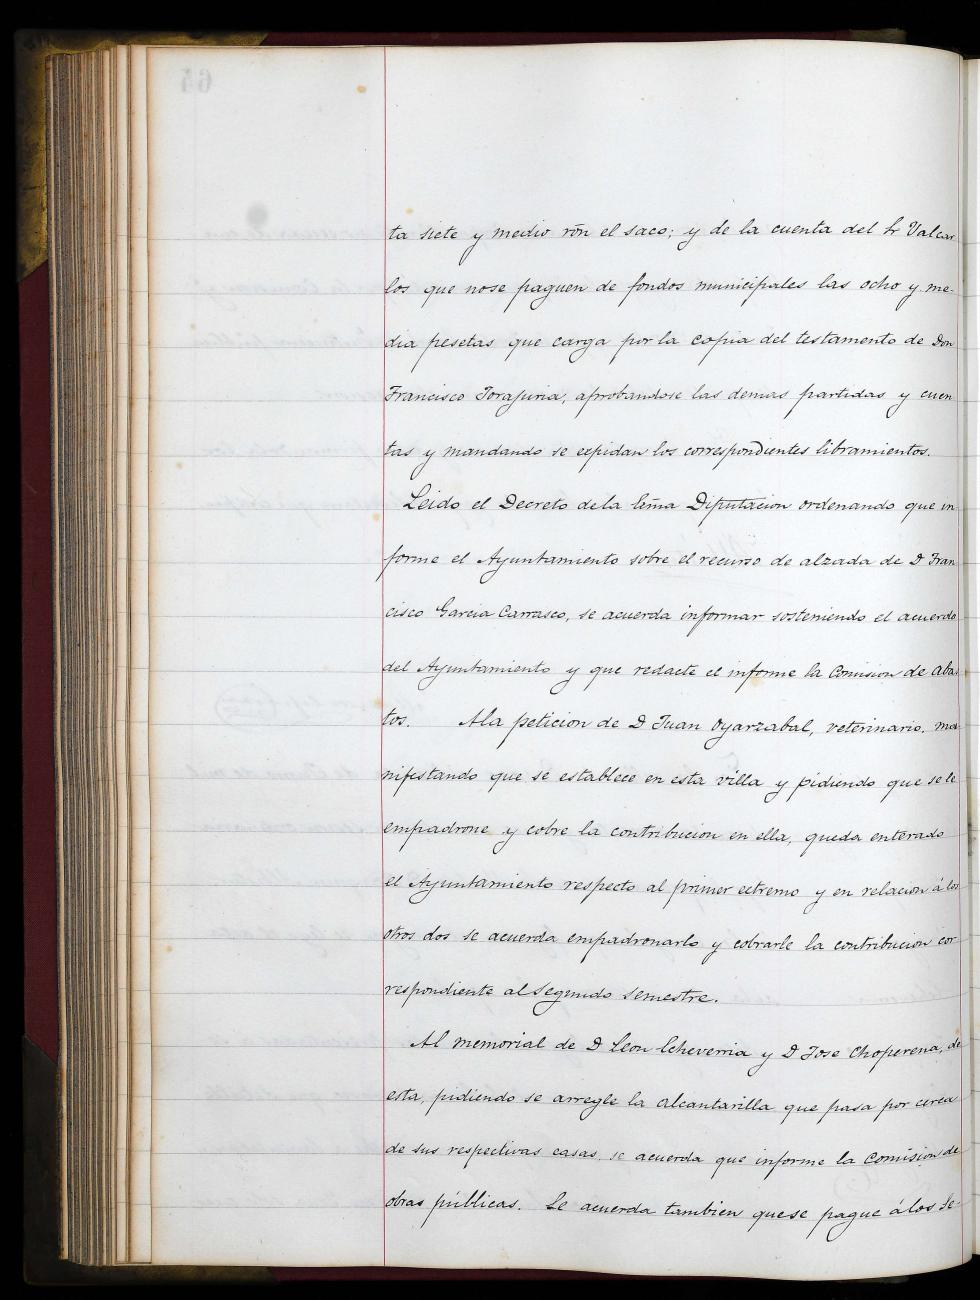 ta siete y medio rōn el saco; y de la cuenta del Sr Valcar
los que nose paguen de fondos municipales las ocho y me-
dia pesetas que carga por la copia del testamento de Don
Francisco aprobandose las demas partidas y cuen
tas y mandando se expidan los correspondientes libramientos.
Leido el Decreto dela Eēma Diputacion ordenando que in
forme el Ayuntamiento sobre el recurso de alzada de D Fran
cisco Garcia Carrasco, se acuerda informar sosteniendo el acuerdo
del Ayuntamiento y que redacte el informe la Comision de aba-
tos. Ala peticion de D Juan Oyarzabal, veterinario, ma-
nifestando que se establece en esta villa y pidiendo que se le
empadrone y cobre la contribucion en ella, queda enterado
el Ayuntamiento respecto al primer extremo y en relacion á los
otros dos se acuerda empadronarlo y cobrarle la contribucion cor
respondiente al segundo semestre.
Al memorial de D Leon Echeverria y D Jose Choperena, de
esta, pidiendo se arregle la alcantarilla que pasa por cerca
de sus respectivas casas, se acuerda que informe la Comision de
obras públicas. Se acuerda tambien quese pague álos Se-